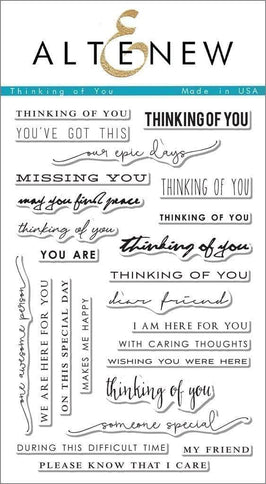 ALTENEW
Thinking of You
Made in USA
THINKING OF YOU
THINKING OF YOU
YOU'VE GOT THIS
our epic days
MISSING YOU
THINKING OF YOU
may you find peace
THINKING OF YOU
thinking of you
thinking of you
YOU ARE
THINKING OF YOU
one awesome person
WE ARE HERE FOR YOU
ON THIS SPECIAL DAY
MAKES ME HAPPY
dear friend
I AM HERE FOR YOU
WITH CARING THOUGHTS
WISHING YOU WERE HERE
thinking of you
someone special
DURING THIS DIFFICULT TIME
MY FRIEND
PLEASE KNOW THAT I CARE